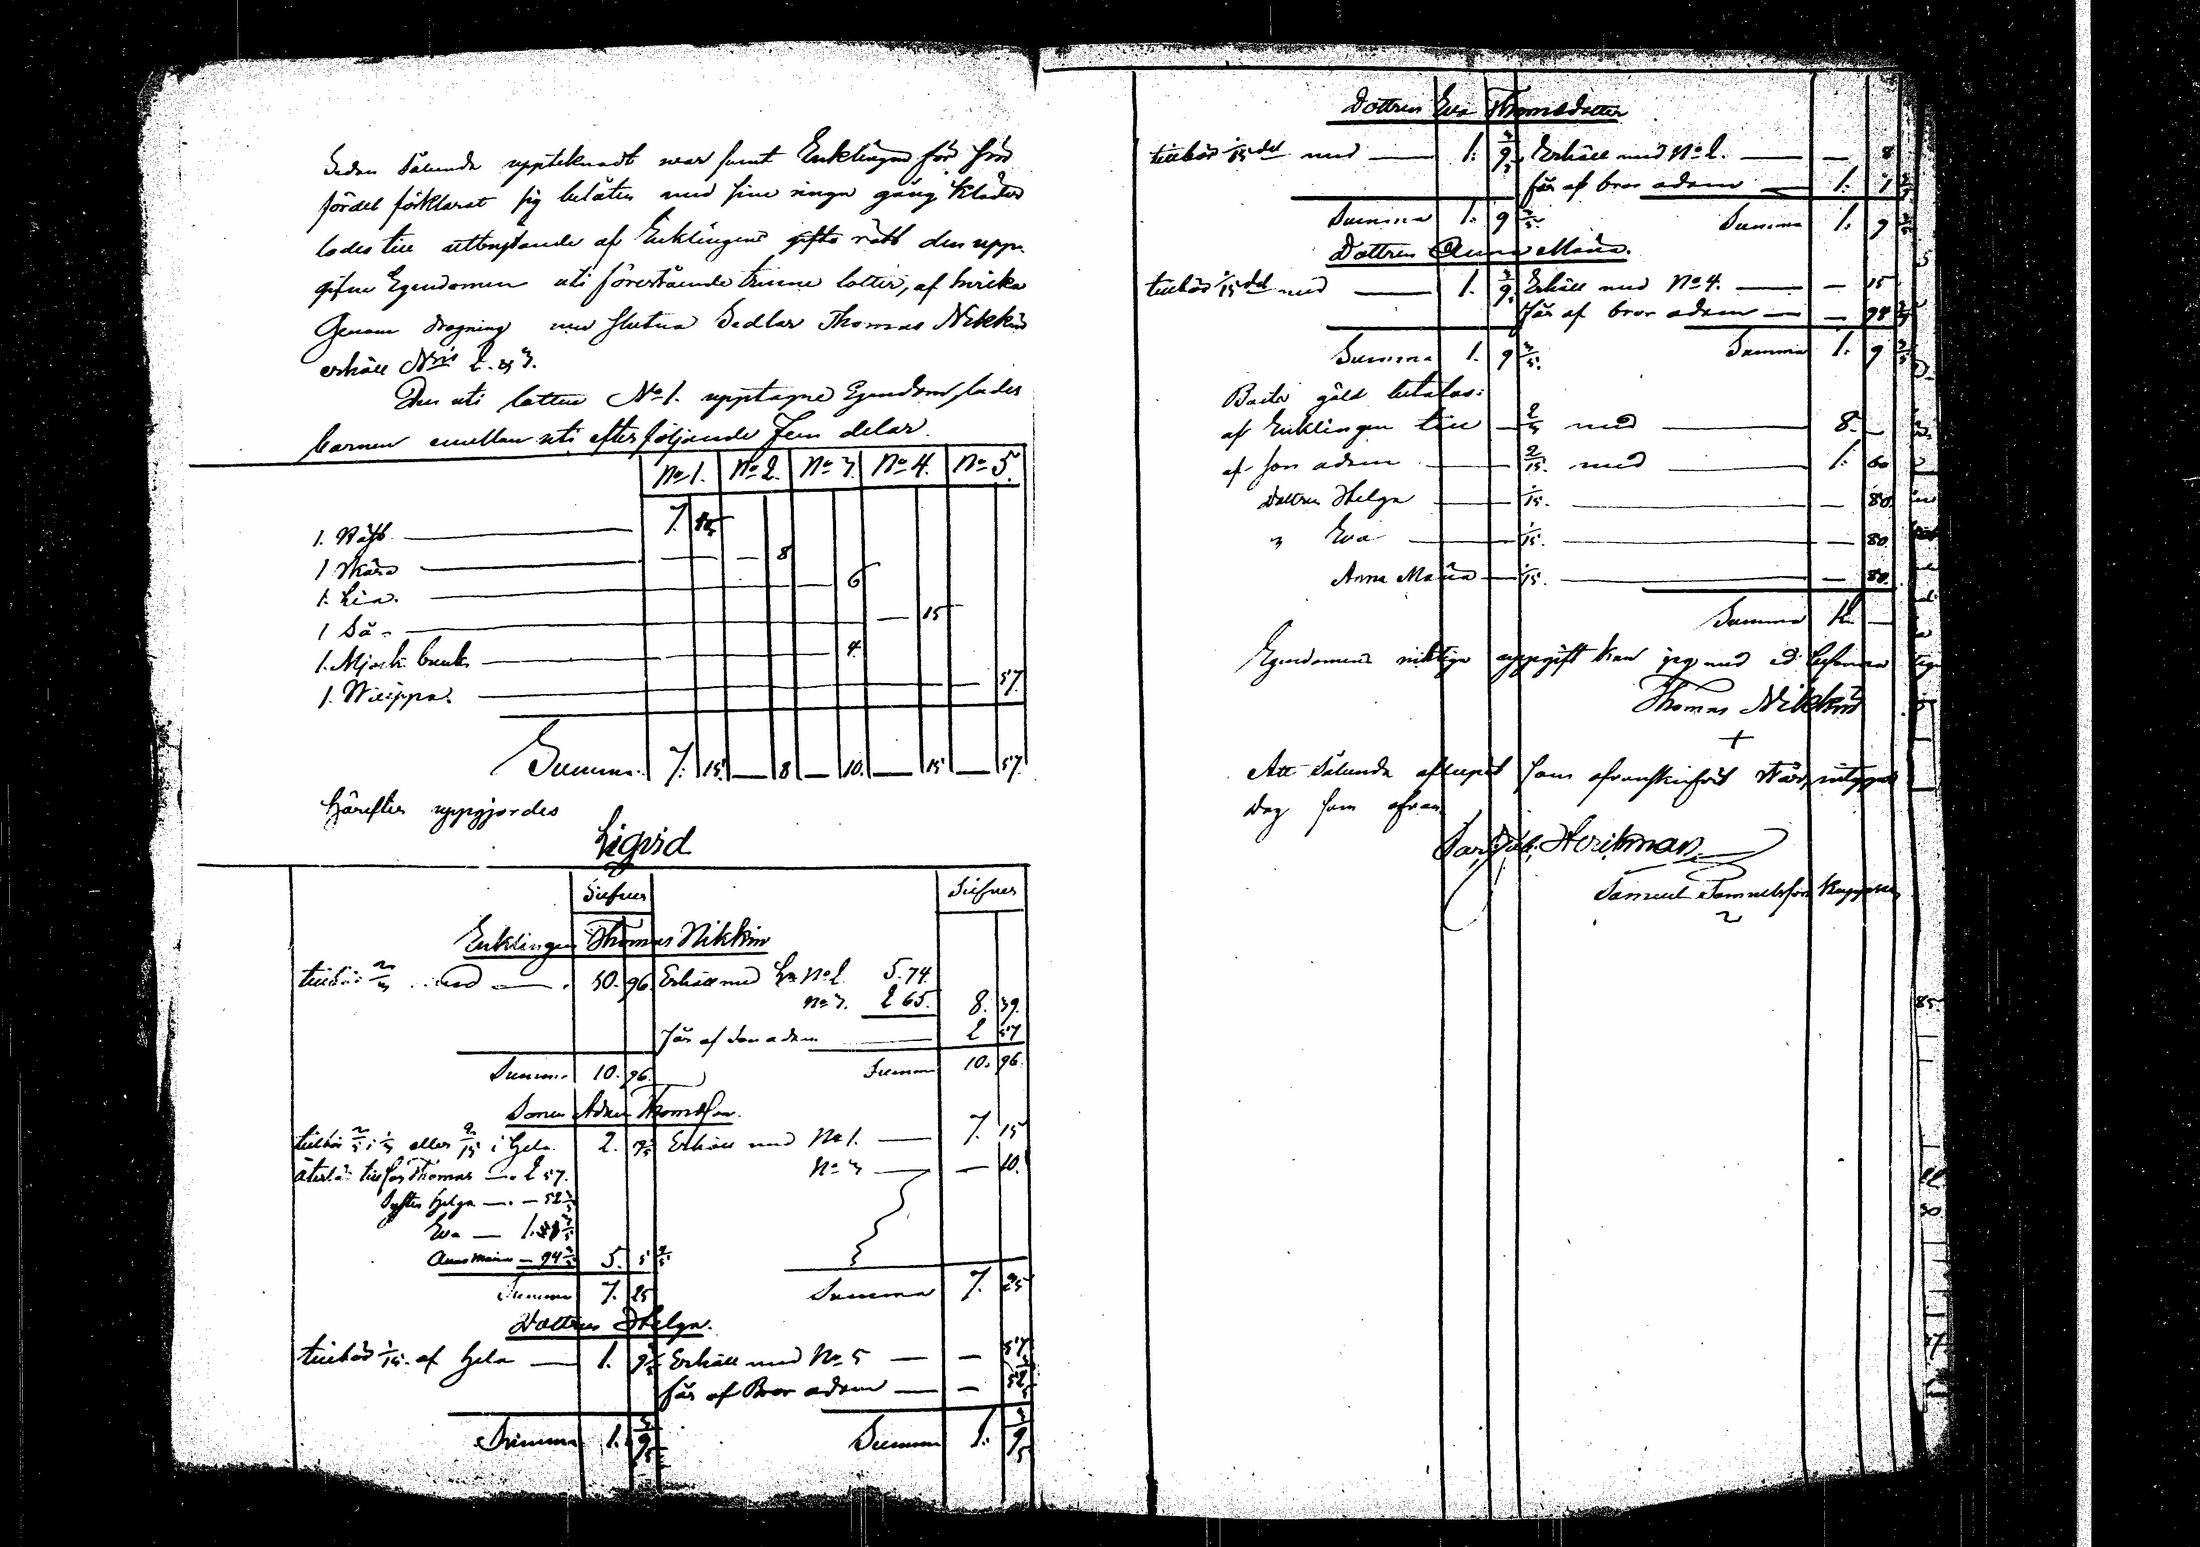 Sedan sålunda uppteknadt war samt Enklingen för sin
fördel förklarat sig belåten med sine ringa gång kläder
lades till utbrytande af Enklingens gifto rätt den upp-
gifne Egendomen uti förestående trenne lotter, af hvilka
Genom dragning med slutna Sedlar Thomas Nikkin
erhöll Nris 2. & 3.
Den uti lotten No 1. upptagne Egendom, lades
barnen emellan uti efterföljande Fem delar.
No 1. No 2. No 3. No 4. No 5.
1. 7. 15
1 Skära — 8
1. Lia. — 6
1 Så — 15
1. Mjölk bunk — 4.
1. — 57.
Summa 7. 15. — 8 — 10. — 15 — 57.
Härefter uppgjordes
Liqvid
Silfver Silfver
Enklingen Thomas Nikkin
tillhör 2/3 med — 10. 96 Erhåller med No 2. 5.74.
No 3. 2 65. 8. 39.
Får af Son adam 2 57
Summa 10. 96. Summa 10. 96.
Sonen Adam Thomasson.
tillhör 2/5 i 1/3 eller 2/15 i Hela 2. 19 3/5 Erhåll med No 1. — 7. 15
återbär till far Thomas — 2 57. No 3 — — 10.
Syster Helga — 52 3/5
Eva — 1. 1 3/5
Anna Maria — 94 3/5 5. 5 2/5
Summa 7. 25 Summa 7. 25
Dottren Helga.
tillhör 1/15 af Hela — 1. 9 3/5 Erhåll med No 5 — — 57
får af Bror adam — — 52 3/5
Summa 1. 9 3/5 Summa 1. 9 3/5
Dottren Eva Thomsdotter
tillhör 1/15 del med — 1. 9 3/5 Erhåll med No 2. — — 8
får af bror adam — 1. 1 3/5
Summa 1. 9 3/5 Summa 1. 9 3/5
Dottren Anna Maria.
tillhör 1/15 del med — 1. 9 3/5 Erhåll med No 4. — — 15
får af bror adam — — 94 3/5
Summa 1. 9 3/5 Summa 1. 9 3/5
Boets gäld betalas:
af Enklingen till — 2/3 med — 8. —
af son adam — 2/15. med — 1. 60
Dottren Helga — 1/15. — — 80
" Eva — 1/15. — — 80
Anna Maria — 1/15. — — 80.
Summa 12. —
Egendomens riktiga uppgift kan jag med ed
Thomas Nikkin
+
Att sålunda aflupit som ofvanskrifvit står, intygas
Dag som ofvan
Samuel Samuelsson